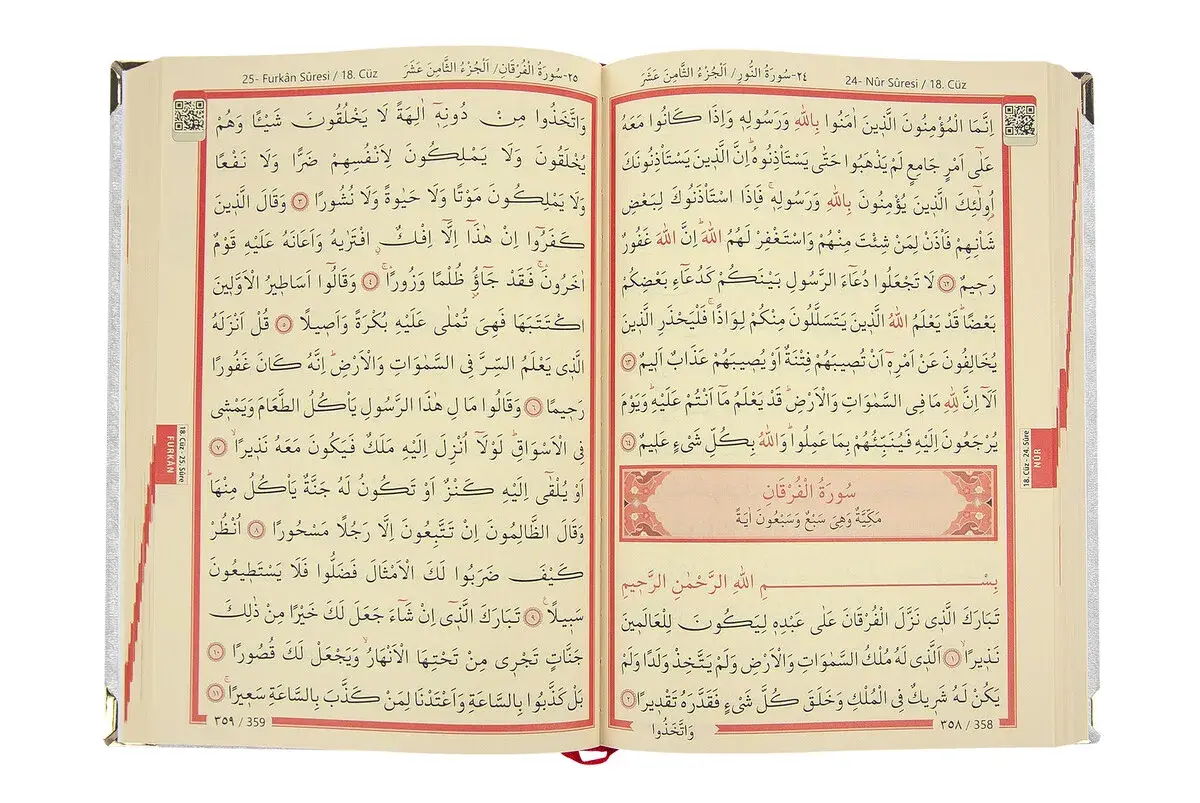 ٢٤-سُورَةُ النُّورِ/ اَلْجُزْءُ الثَّامِنَ عَشَرَ
24- Nûr Sûresi / 18. Cüz
اِنَّمَا الْمُؤْمِنُونَ الَّذ۪ينَ اٰمَنُوا بِاللّٰهِ وَرَسُولِه۪ وَاِذَا كَانُوا مَعَهُ
عَلٰٓى اَمْرٍ جَامِعٍ لَمْ يَذْهَبُوا حَتّٰى يَسْتَأْذِنُوهُۜ اِنَّ الَّذ۪ينَ يَسْتَأْذِنُونَكَ
اُو۬لٰٓئِكَ الَّذ۪ينَ يُؤْمِنُونَ بِاللّٰهِ وَرَسُولِه۪ۚ فَاِذَا اسْتَأْذَنُوكَ لِبَعْضِ
شَأْنِهِمْ فَأْذَنْ لِمَنْ شِئْتَ مِنْهُمْ وَاسْتَغْفِرْ لَهُمُ اللّٰهَۜ اِنَّ اللّٰهَ غَفُورٌ
رَح۪يمٌ ﴿٦٢﴾ لَا تَجْعَلُوا دُعَٓاءَ الرَّسُولِ بَيْنَكُمْ كَدُعَٓاءِ بَعْضِكُمْ
بَعْضًاۜ قَدْ يَعْلَمُ اللّٰهُ الَّذ۪ينَ يَتَسَلَّلُونَ مِنْكُمْ لِوَاذًاۚ فَلْيَحْذَرِ الَّذ۪ينَ
يُخَالِفُونَ عَنْ اَمْرِه۪ٓ اَنْ تُص۪يبَهُمْ فِتْنَةٌ اَوْ يُص۪يبَهُمْ عَذَابٌ اَل۪يمٌ ﴿٦٣﴾
اَلَٓا اِنَّ لِلّٰهِ مَا فِي السَّمٰوَاتِ وَالْاَرْضِۜ قَدْ يَعْلَمُ مَٓا اَنْتُمْ عَلَيْهِۜ وَيَوْمَ
يُرْجَعُونَ اِلَيْهِ فَيُنَبِّئُهُمْ بِمَا عَمِلُواۜ وَاللّٰهُ بِكُلِّ شَيْءٍ عَل۪يمٌ ﴿٦٤﴾
سُورَةُ الْفُرْقَانِ
مَكِّيَّةٌ وَهِيَ سَبْعٌ وَسَبْعُونَ اٰيَةً
بِسْمِ اللّٰهِ الرَّحْمٰنِ الرَّح۪يمِ
تَبَارَكَ الَّذ۪ي نَزَّلَ الْفُرْقَانَ عَلٰى عَبْدِه۪ لِيَكُونَ لِلْعَالَم۪ينَ
نَذ۪يرًاۙ ﴿١﴾ اَلَّذ۪ي لَهُ مُلْكُ السَّمٰوَاتِ وَالْاَرْضِ وَلَمْ يَتَّخِذْ وَلَدًا وَلَمْ
يَكُنْ لَهُ شَر۪يكٌ فِي الْمُلْكِ وَخَلَقَ كُلَّ شَيْءٍ فَقَدَّرَهُ تَقْد۪يرًا ﴿٢﴾
٣٥٨ / 358
وَاتَّخَذُوا
18. Cüz - 24. Sûre
NÛR
٢٥-سُورَةُ الْفُرْقَانِ/ اَلْجُزْءُ الثَّامِنَ عَشَرَ
25- Furkân Sûresi / 18. Cüz
وَاتَّخَذُوا مِنْ دُونِه۪ٓ اٰلِهَةً لَا يَخْلُقُونَ شَيْـًٔا وَهُمْ
يُخْلَقُونَ وَلَا يَمْلِكُونَ لِاَنْفُسِهِمْ ضَرًّا وَلَا نَفْعًا
وَلَا يَمْلِكُونَ مَوْتًا وَلَا حَيٰوةً وَلَا نُشُورًا ﴿٣﴾ وَقَالَ الَّذ۪ينَ
كَفَرُٓوا اِنْ هٰذَٓا اِلَّٓا اِفْكٌۨ افْتَرٰيهُ وَاَعَانَهُ عَلَيْهِ قَوْمٌ
اٰخَرُونَۚ فَقَدْ جَٓاؤُ۫ ظُلْمًا وَزُورًاۚ ﴿٤﴾ وَقَالُٓوا اَسَاط۪يرُ الْاَوَّل۪ينَ
اكْتَتَبَهَا فَهِيَ تُمْلٰى عَلَيْهِ بُكْرَةً وَاَص۪يلًا ﴿٥﴾ قُلْ اَنْزَلَهُ
الَّذ۪ي يَعْلَمُ السِّرَّ فِي السَّمٰوَاتِ وَالْاَرْضِۜ اِنَّهُ كَانَ غَفُورًا
رَح۪يمًا ﴿٦﴾ وَقَالُوا مَالِ هٰذَا الرَّسُولِ يَأْكُلُ الطَّعَامَ وَيَمْش۪ي
فِي الْاَسْوَاقِۜ لَوْلَٓا اُنْزِلَ اِلَيْهِ مَلَكٌ فَيَكُونَ مَعَهُ نَذ۪يرًاۙ ﴿٧﴾
اَوْ يُلْقٰٓى اِلَيْهِ كَنْزٌ اَوْ تَكُونُ لَهُ جَنَّةٌ يَأْكُلُ مِنْهَاۜ
وَقَالَ الظَّالِمُونَ اِنْ تَتَّبِعُونَ اِلَّا رَجُلًا مَسْحُورًا ﴿٨﴾ اُنْظُرْ
كَيْفَ ضَرَبُوا لَكَ الْاَمْثَالَ فَضَلُّوا فَلَا يَسْتَط۪يعُونَ
سَب۪يلًا۟ ﴿٩﴾ تَبَارَكَ الَّذ۪ٓي اِنْ شَٓاءَ جَعَلَ لَكَ خَيْرًا مِنْ ذٰلِكَ
جَنَّاتٍ تَجْر۪ي مِنْ تَحْتِهَا الْاَنْهَارُۙ وَيَجْعَلْ لَكَ قُصُورًا ﴿١٠﴾
بَلْ كَذَّبُوا بِالسَّاعَةِ وَاَعْتَدْنَا لِمَنْ كَذَّبَ بِالسَّاعَةِ سَع۪يرًاۚ ﴿١١﴾
٣٥٩ / 359
18. Cüz - 25. Sûre
FURKÂN